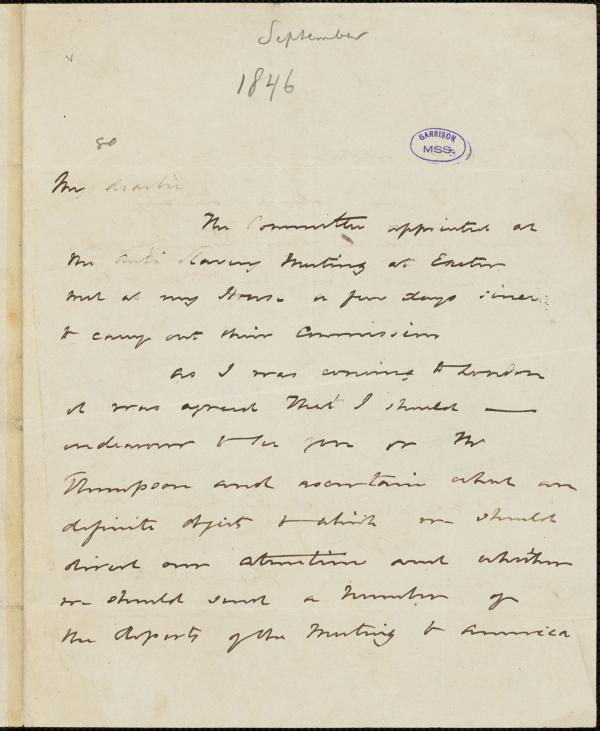 September
1846
80
GARRISON
MSS.
My dear Sir
The Committee appointed at
the Anti Slavery Meeting at Exeter
met at my House a few days since
to carry out their Commission
as I was coming to London
it was agreed that I should —
endeavour to see you or Mr
Thompson and ascertain what are
definite objects to which we should
direct our attention and whether
we should send a Number of
the Reports of the Meeting to America